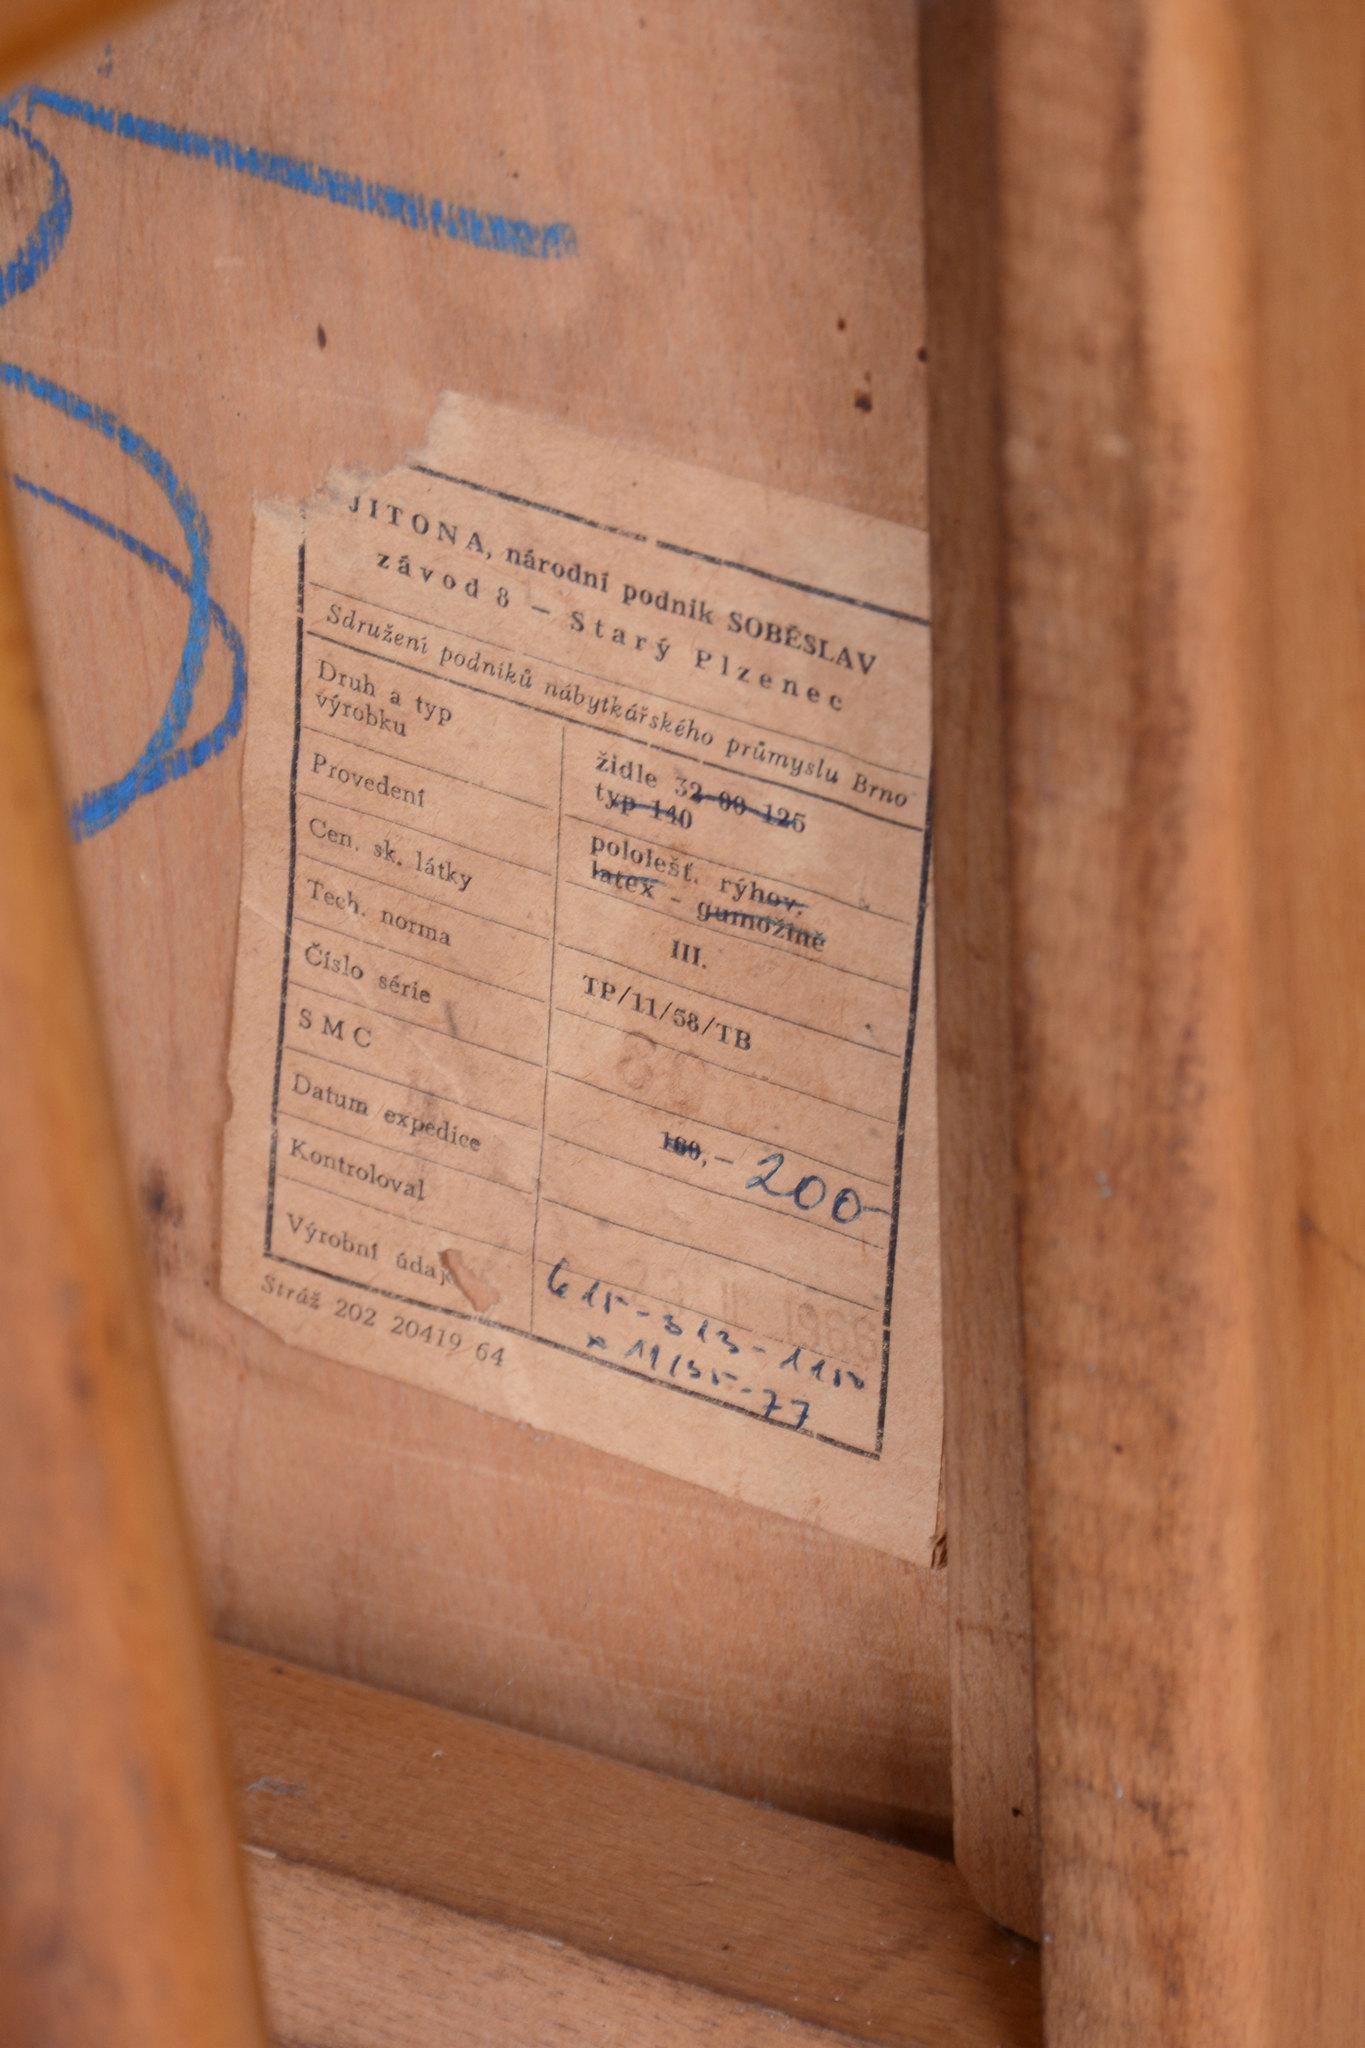 JITONA, národní podnik SOBĚSLAV
závod 8 — Starý Plzenec
Sdružení podniků nábytkářského průmyslu Brno
Druh a typ
výrobku
židle 32-00-125
typ 140
Provedení
pololešť. rýhov.
latex - gumožíně
Cen. sk. látky
III.
Tech. norma
TP/11/58/TB
Číslo série
SMC
160,- 200-
Datum expedice
Kontroloval
Výrobní údaj
615-313-1150
Stráž 202 20419 64